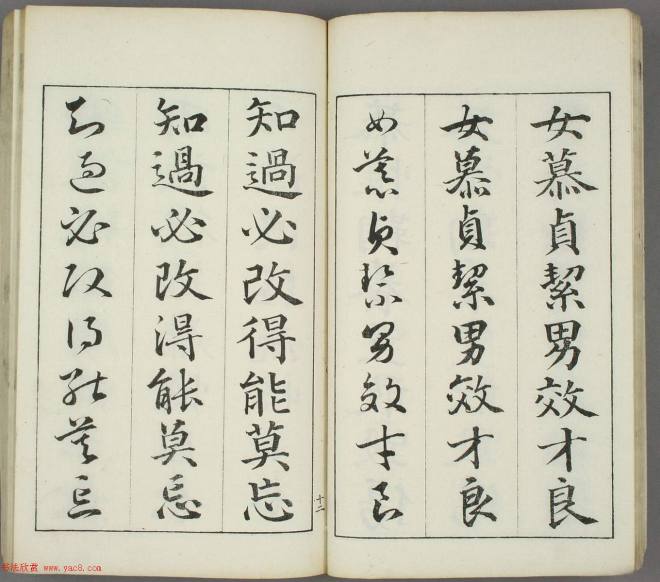 女慕貞絜男效才良
女慕貞絜男效才良
女慕貞絜男效才良
十二
知過必改得能莫忘
知過必改得能莫忘
知過必改得能莫忘
书法欣赏 www.yac8.com